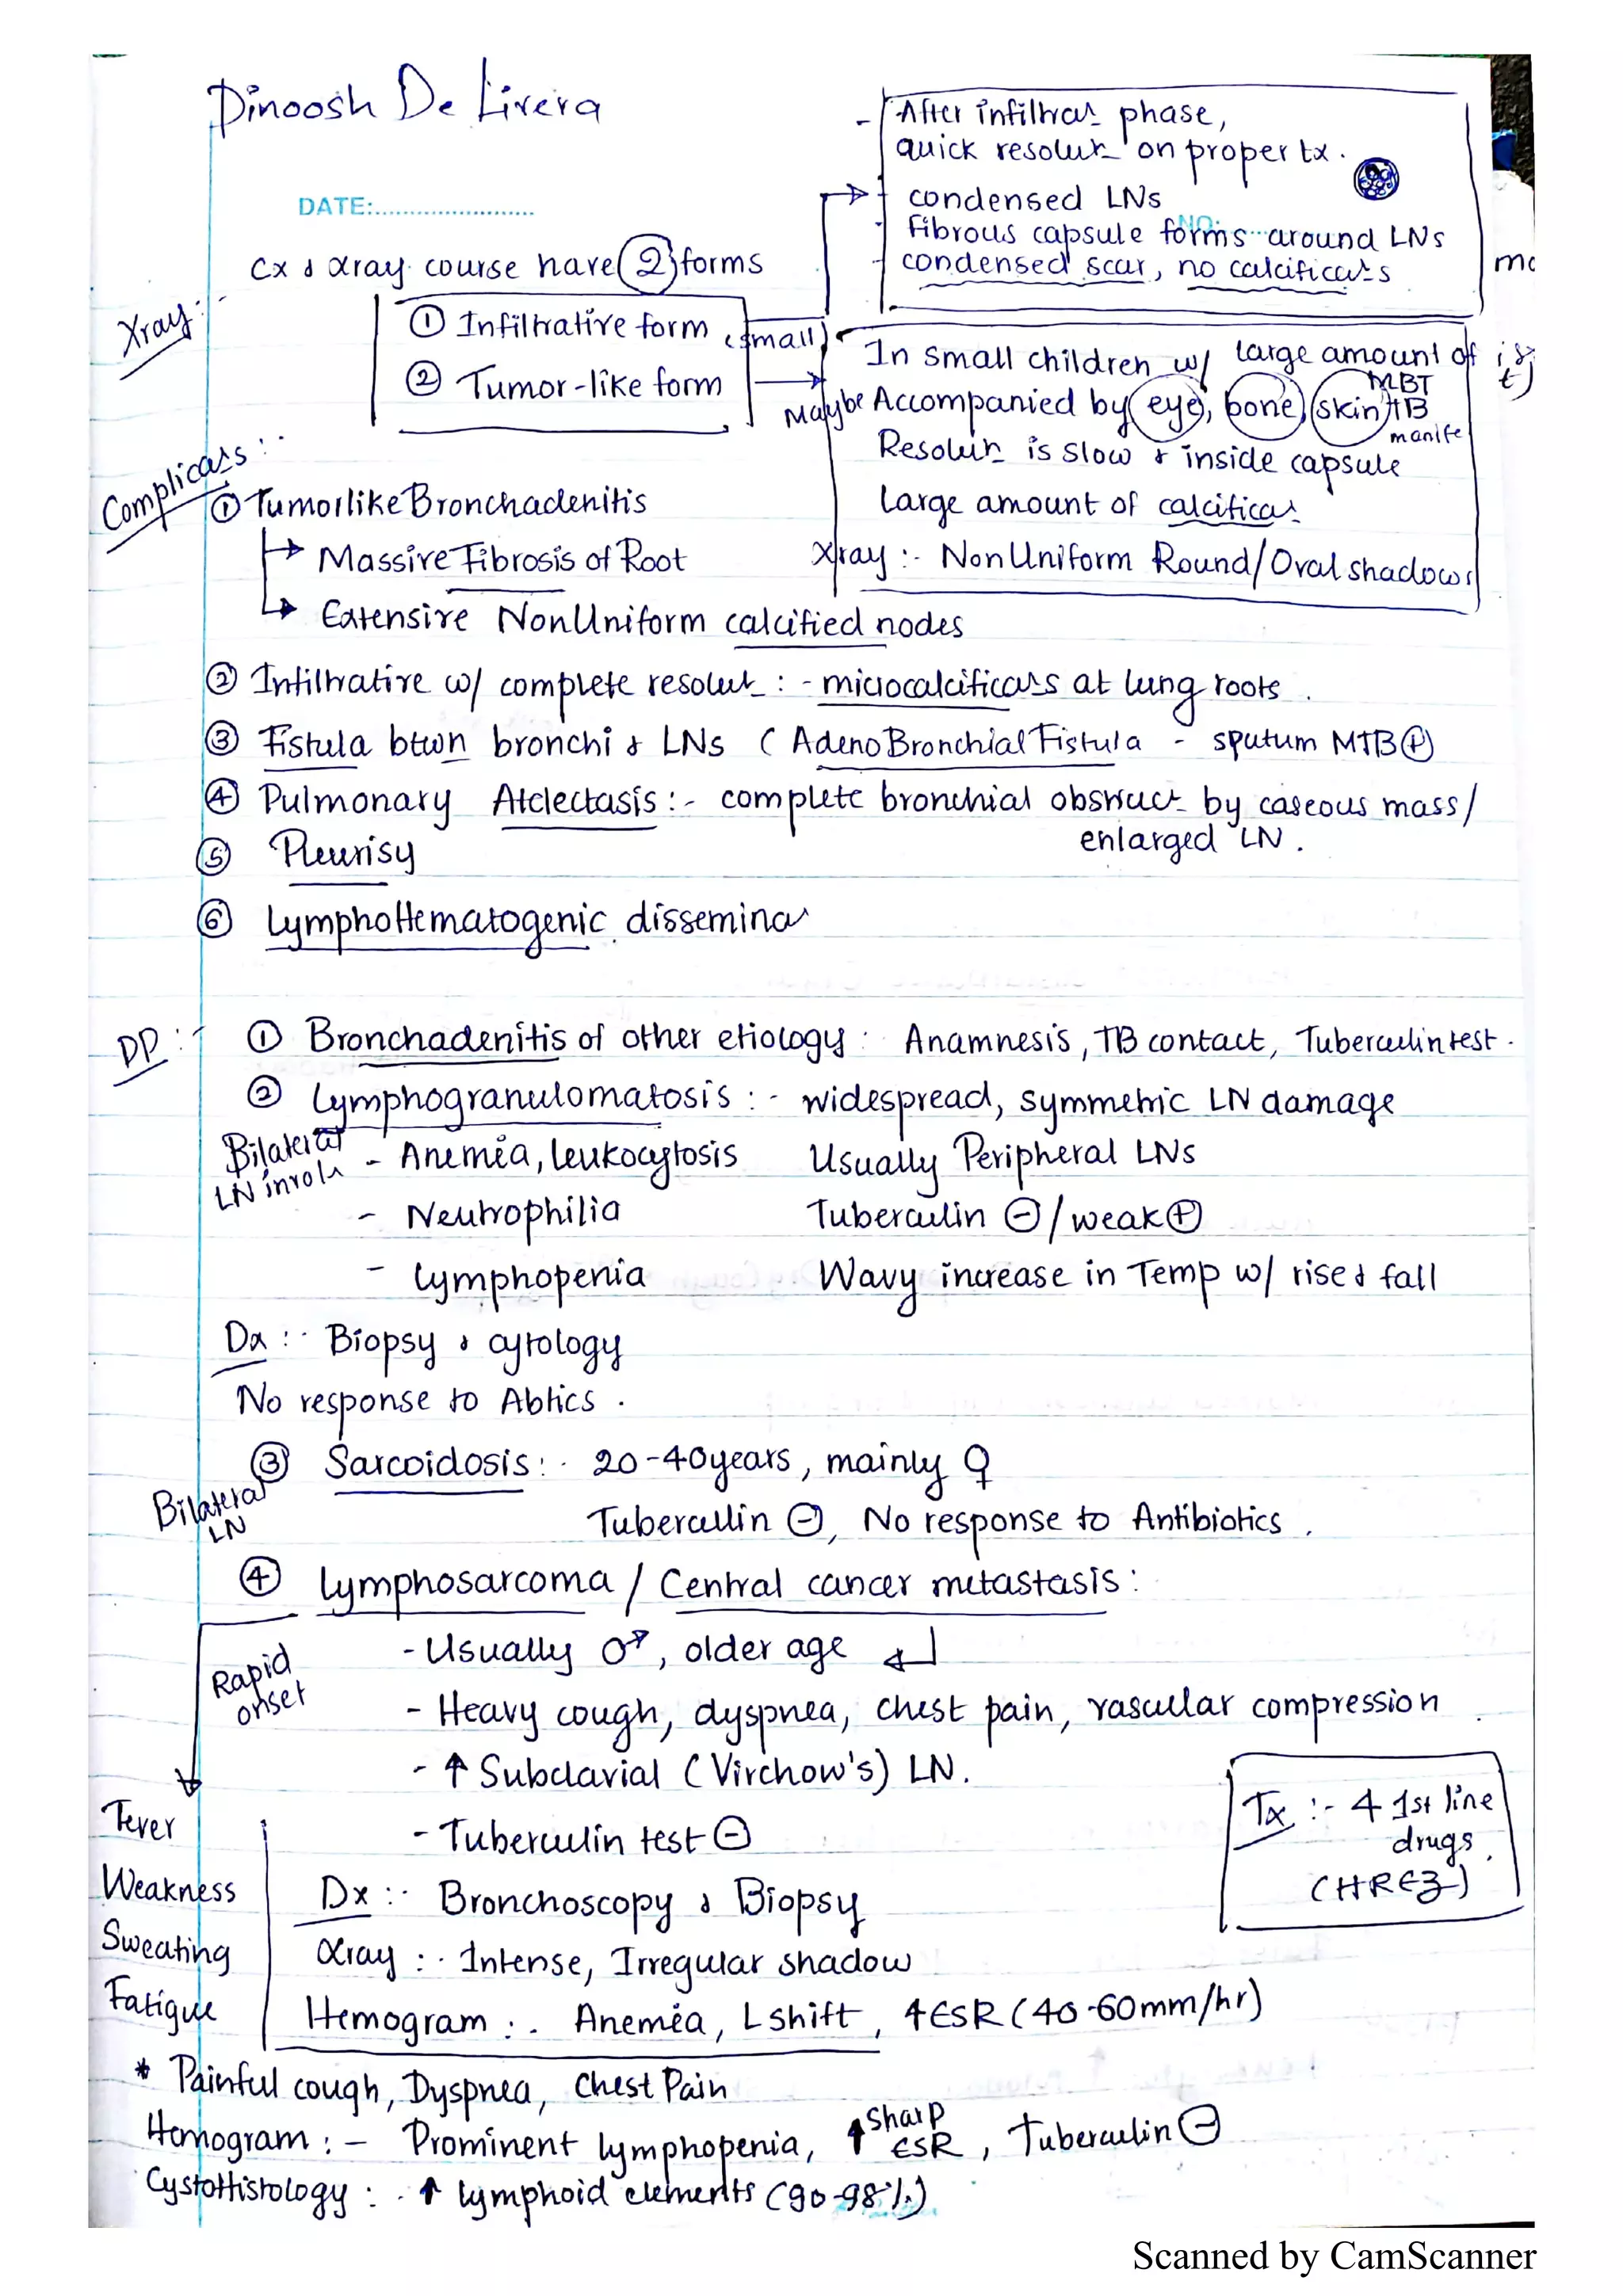 Dinoosh De Livera
DATE:
NO:
- After infiltrat phase,
quick resolut on proper tx.
- condensed LNs
- Fibrous capsule forms around LNs
- condensed scar, no calcificats
Cx & Xray course have 2 forms
Xray:-
① Infiltrative form (small)
② Tumor-like form
In small children w/ large amount of
MBT
Maybe Accompanied by eye, bone, skin TB
manife
Resolutn is slow & inside capsule
Large amount of calcificat
Xray :- NonUniform Round/Oval shadows
Complicats :-
① Tumorlike Bronchadenitis
→ Massive Fibrosis of Root
→ Extensive NonUniform calcified nodes
② Infiltrative w/ complete resolut :- microcalcificats at lung roots.
③ Fistula btwn bronchi & LNs ( AdenoBronchial Fistula - sputum MTB ⊕
④ Pulmonary Atelectasis :- complete bronchial obstruct by caseous mass/
enlarged LN.
⑤ Pleurisy
⑥ LymphoHematogenic disseminat
DD :-
① Bronchadenitis of other etiology : Anamnesis, TB contact, Tuberculin test.
② Lymphogranulomatosis :- widespread, symmetric LN damage
Bilateral
LN involv
- Anemia, leukocytosis Usually Peripheral LNs
- Neutrophilia Tuberculin ⊖/weak ⊕
- Lymphopenia Wavy increase in Temp w/ rise & fall
Dx :- Biopsy & cytology
No response to Abtics.
③ Sarcoidosis :- 20-40years, mainly ♀
Bilateral
LN
Tuberculin ⊖, No response to Antibiotics.
④ Lymphosarcoma / Central cancer metastasis :
Rapid
onset
- Usually ♂, older age ↵
- Heavy cough, dyspnea, chest pain, vascular compression.
- ↑ Subclavial (Virchow's) LN.
- Tuberculin test ⊖
Tx :- 4 1st line
drugs.
(HREZ)
Fever
Weakness
Sweating
Fatigue
Dx :- Bronchoscopy & Biopsy
Xray :- Intense, Irregular shadow
Hemogram :- Anemia, L shift, ↑ESR (40-60mm/hr)
* Painful cough, Dyspnea, Chest Pain
Hemogram :- Prominent lymphopenia, ↑ sharp ESR, Tuberculin ⊖
CystoHistology :- ↑ lymphoid elements (90-98%)
Scanned by CamScanner